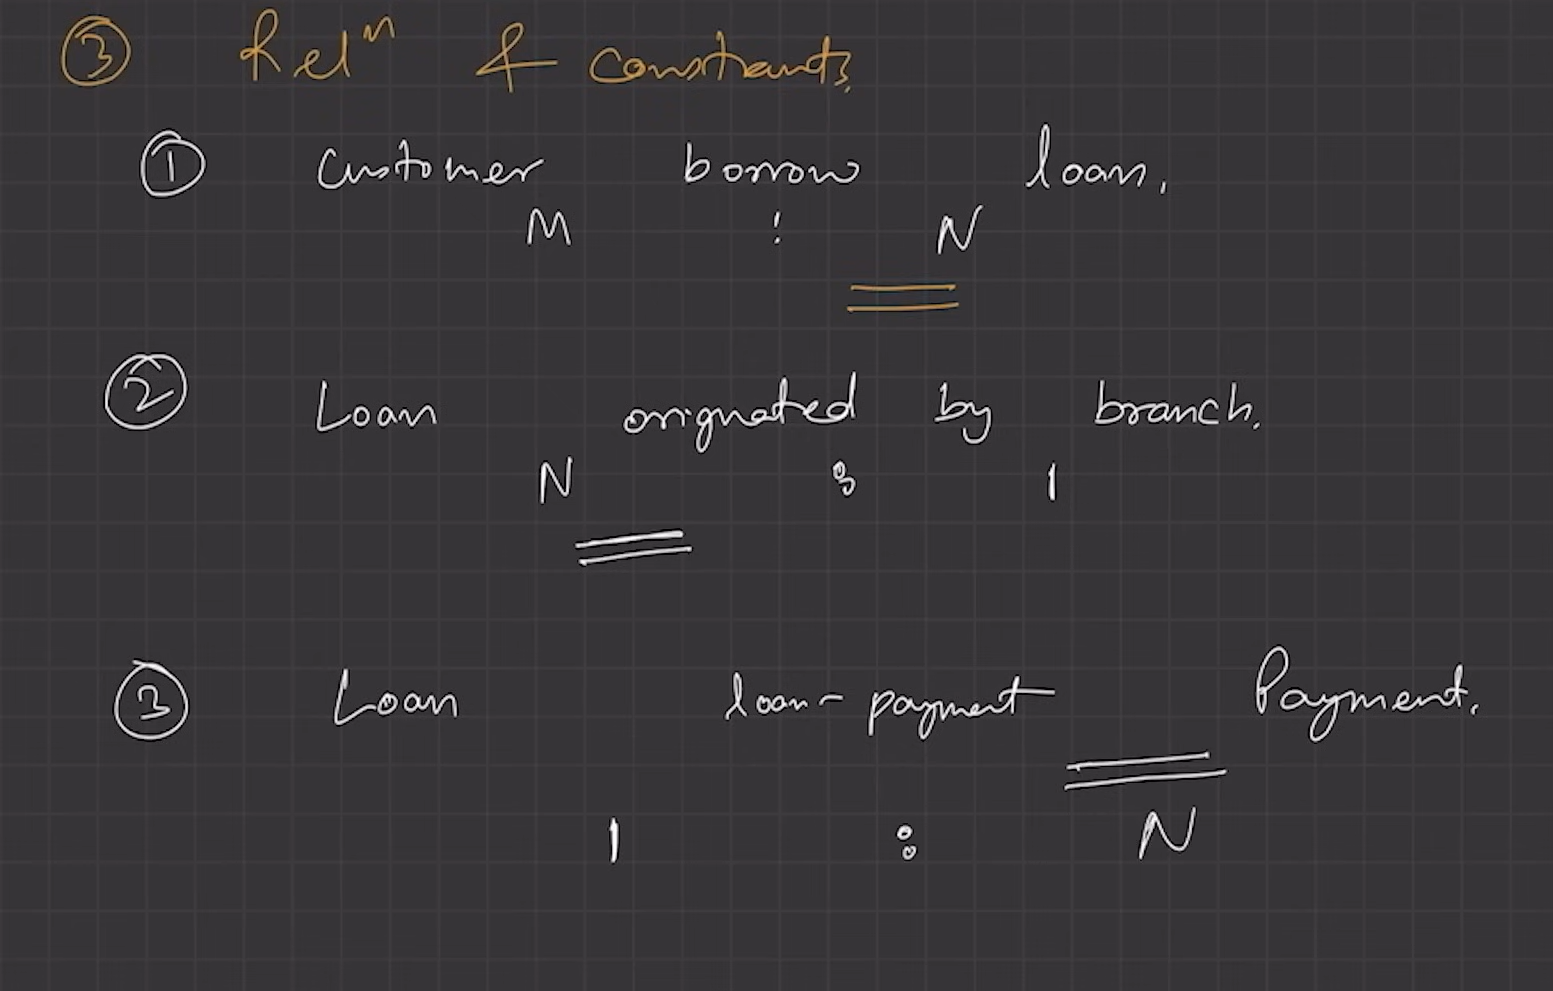 ③ Relⁿ & constraints
① Customer borrow loan.
M : N
② Loan originated by branch.
N : 1
③ Loan loan-payment Payment.
1 : N